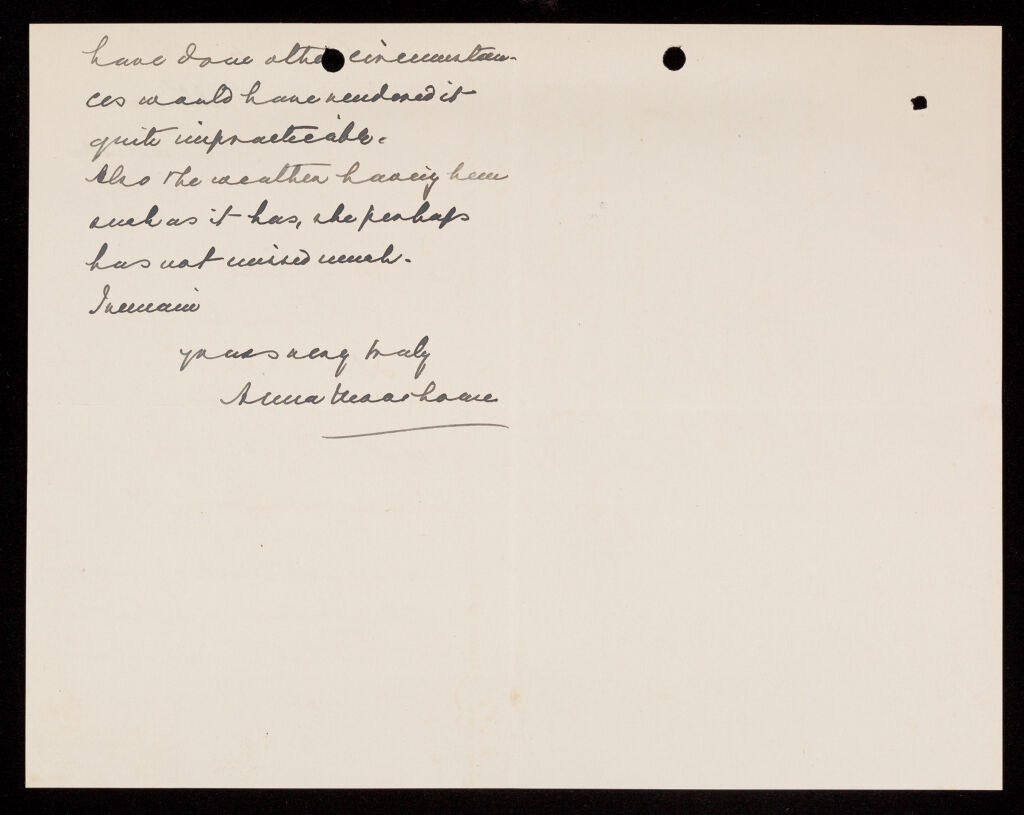 have done other circumstan-
ces would have rendered it
quite impracticable.
Also the weather having been
such as it has, she perhaps
has not missed much.
I remain
yours very truly
Anna